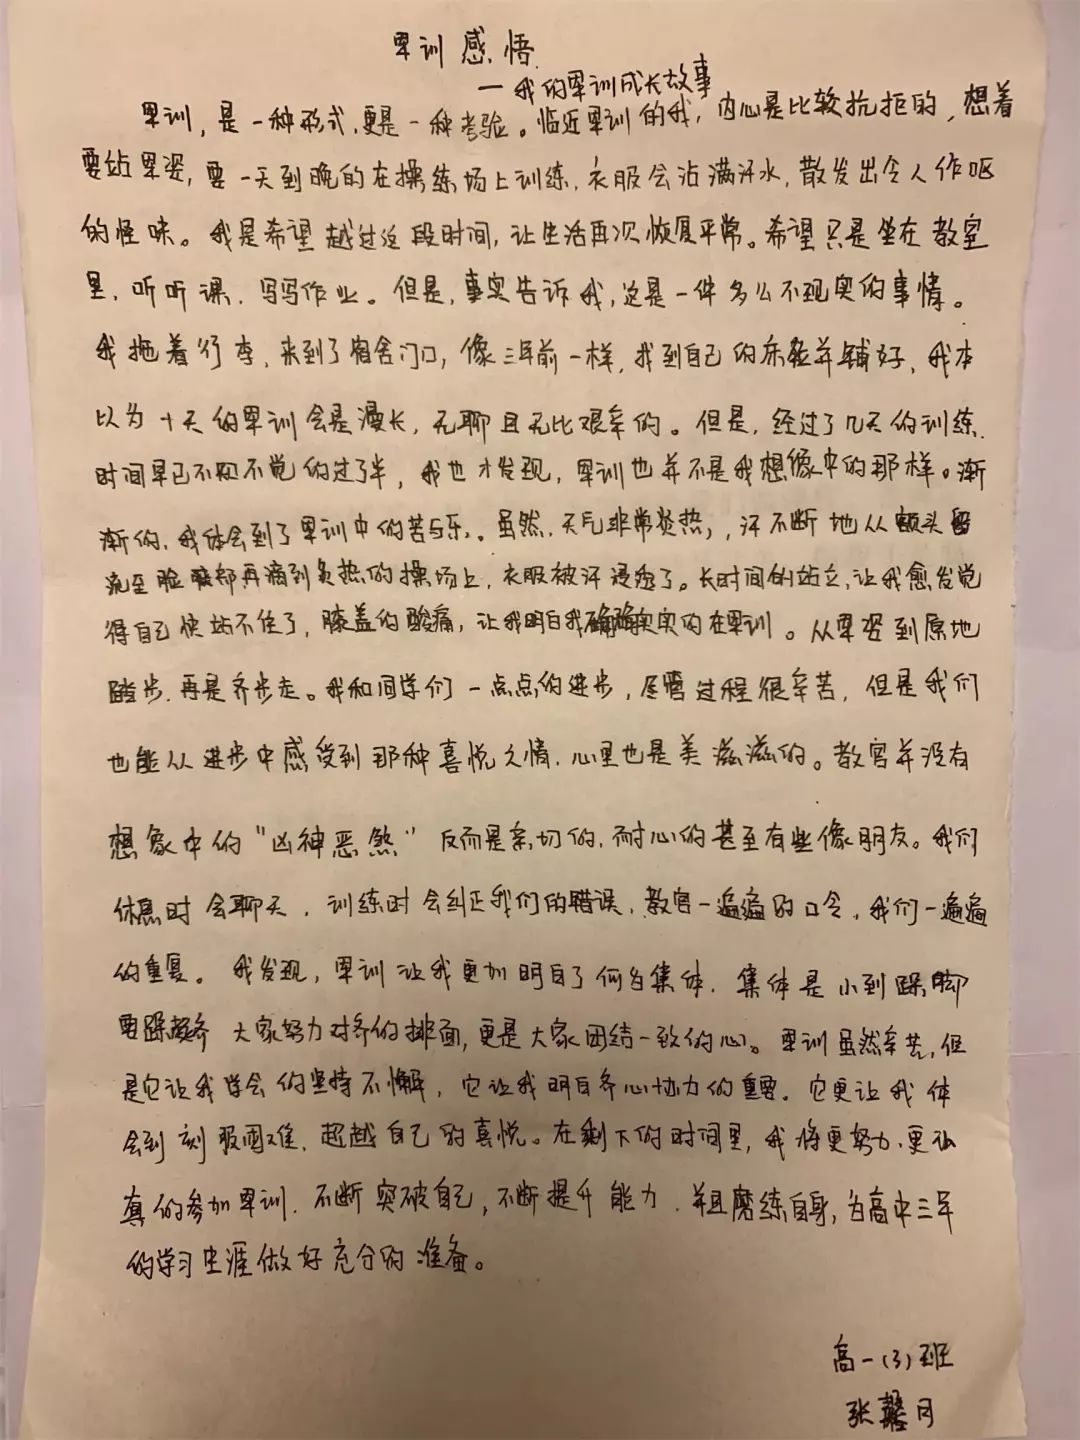 军训感悟
—我的军训成长故事
军训，是一种形式，更是一种考验。临近军训的我，内心是比较抗拒的，想着
要站军姿，要一天到晚的在操练场上训练，衣服会沾满汗水，散发出令人作呕
的怪味。我是希望越过这段时间，让生活再次恢复平常。希望只是坐在教室
里，听听课，写写作业。但是，事实告诉我，这是一件多么不现实的事情。
我拖着行李，来到了宿舍门口，像三年前一样，找到自己的床位并铺好，我本
以为十天的军训会是漫长，无聊且无比艰辛的。但是，经过了几天的训练，
时间早已不知不觉的过了半，我也才发现，军训也并不是我想像中的那样。渐
渐的，我体会到了军训中的苦与乐。虽然，天气非常炎热，汗不断地从额头
流至脸部再滴到炎热的操场上，衣服被汗浸透了。长时间的站立，让我愈发觉
得自己快站不住了，膝盖的酸痛，让我明白我确确实实的在军训。从军姿到原地
踏步，再是齐步走。我和同学们一点点的进步，尽管过程很辛苦，但是我们
也能从进步中感受到那种喜悦之情，心里也是美滋滋的。教官并没有
想象中的“凶神恶煞”反而是亲切的，耐心的甚至有些像朋友。我们
休息时会聊天，训练时会纠正我们的错误，教官一遍遍的口令，我们一遍遍
的重复。我发现，军训让我更加明白了何为集体，集体是小到跺脚
要跺齐 大家努力对齐的排面，更是大家团结一致的心。军训虽然辛苦，但
是它让我学会的坚持不懈，它让我明白齐心协力的重要。它更让我体
会到刻服困难，超越自己的喜悦。在剩下的时间里，我将更努力，更认
真的参加军训，不断突破自己，不断提升能力，并且磨练自身，为高中三年
的学习生涯做好充分的准备。
高一（3）班
张馨月